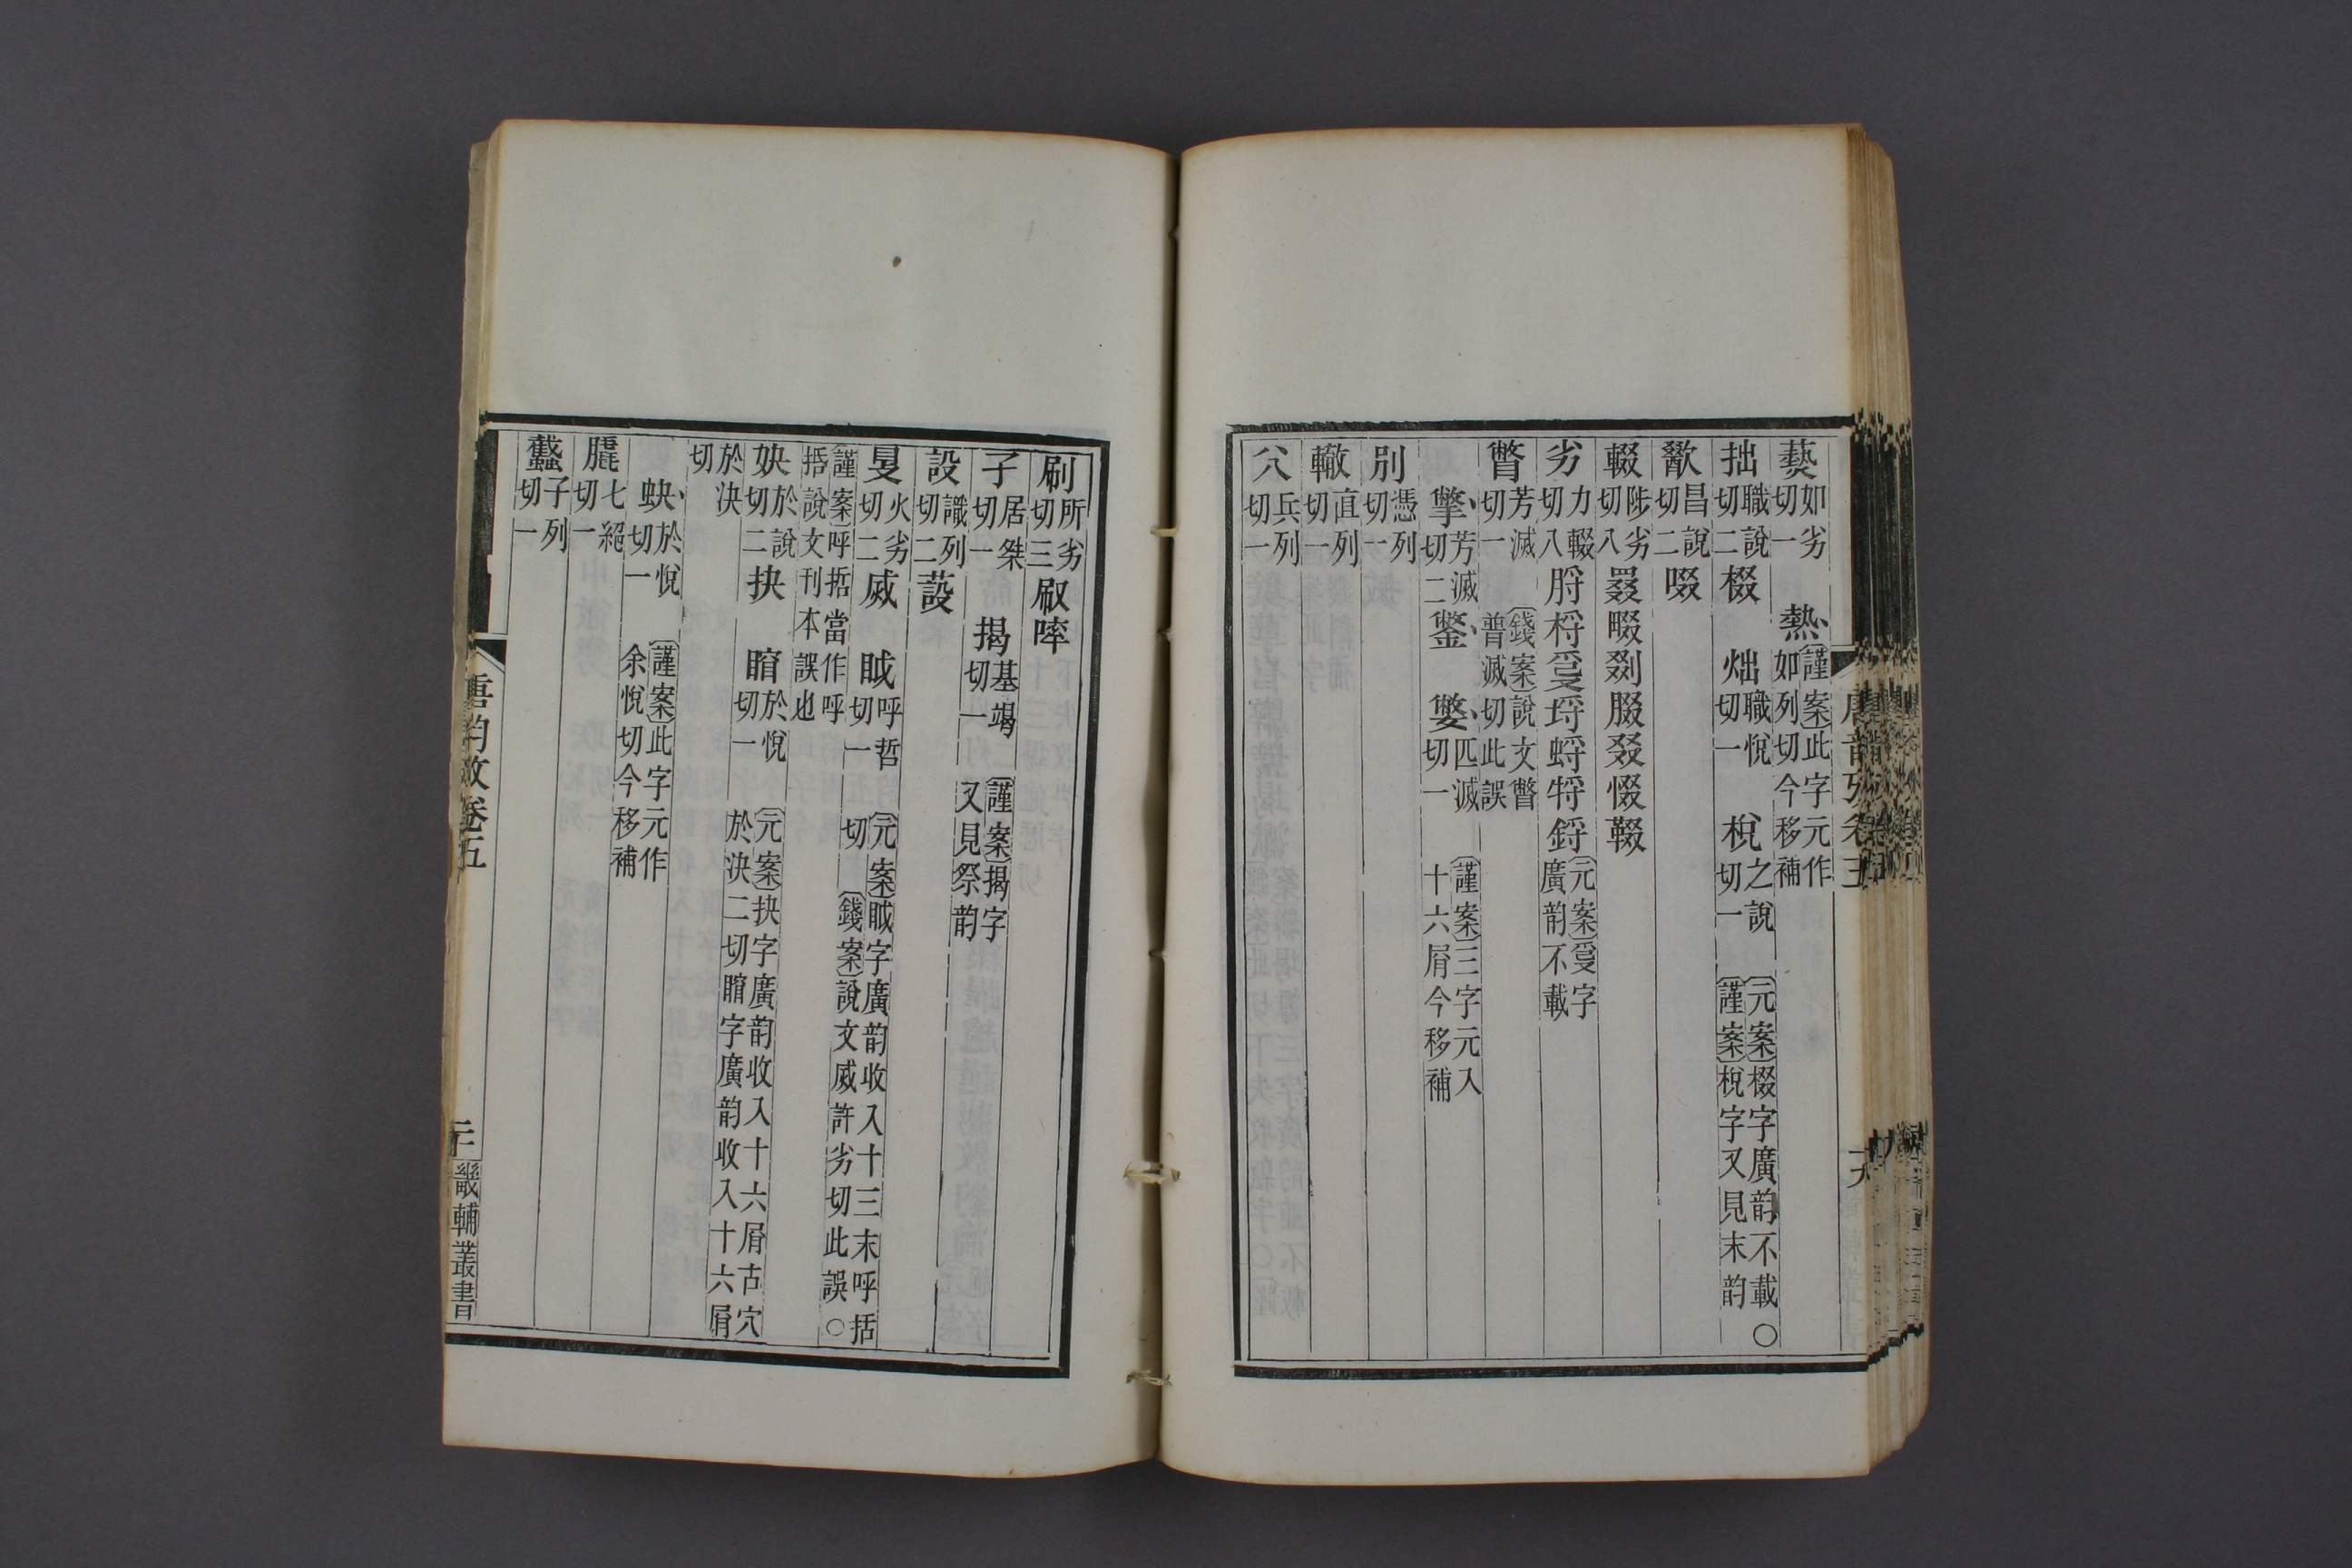 爇如劣切一　熱謹案此字元作如列切今移補
拙職說切二棳　炪職悅切一　梲之說切一　元案棳字廣韵不載○謹案梲字又見末韵
歠昌說切二啜
輟陟劣切八叕畷剟腏叕惙輟
劣力輟切八脟桴㸹埒蛶牸鋝元案𤔫字廣韵不載
瞥芳滅切一　錢案說文瞥普滅切此誤
擎芳滅切二鐅　嫳匹滅切一　謹案三字元入十六屑今移補
別憑列切一
轍直列切一
𠔁兵列切一
唐韵攷卷五
刷所劣切三㕞啐
孑居桀切一　揭基竭切一　謹案揭字又見祭韵
設識列切二蔎
𥄎火劣切二烕　眓呼哲切一　元案眓字廣韵收入十三末呼括切　錢案說文烕許劣切此誤○
謹案呼括當作呼括說文刊本誤也
妜於說切二抉　䁙於悅切一　元案抉字廣韵收入十六屑古穴於決二切䁙字廣韵收入十六屑
於決切
蚗於悅切一　謹案此字元作余悅切今移補
膬七絕切一
蠽子列切一
唐韵攷卷五
二十
畿輔叢書